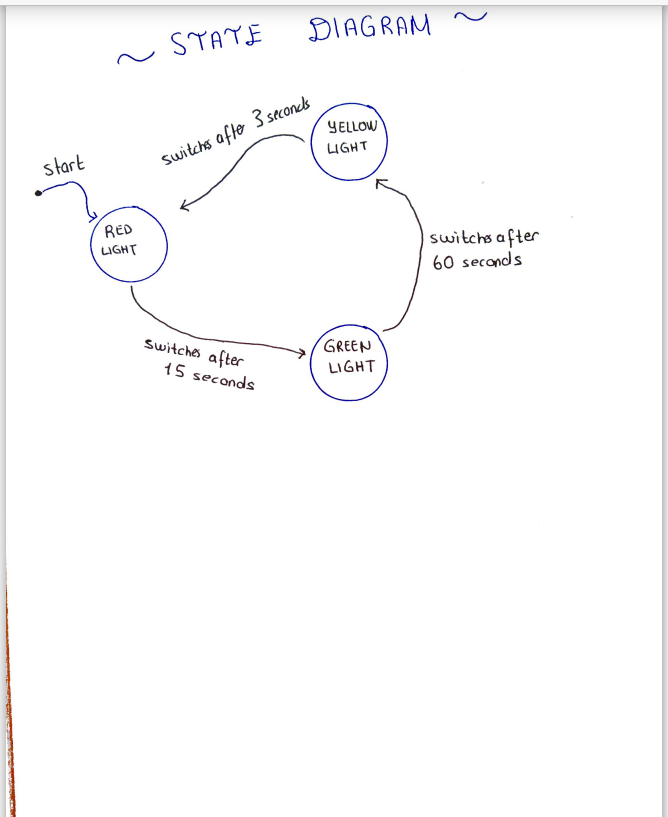 ~ STATE DIAGRAM ~
switches after 3 seconds
YELLOW
LIGHT
start
RED
LIGHT
switches after
60 seconds
switches after
15 seconds
GREEN
LIGHT